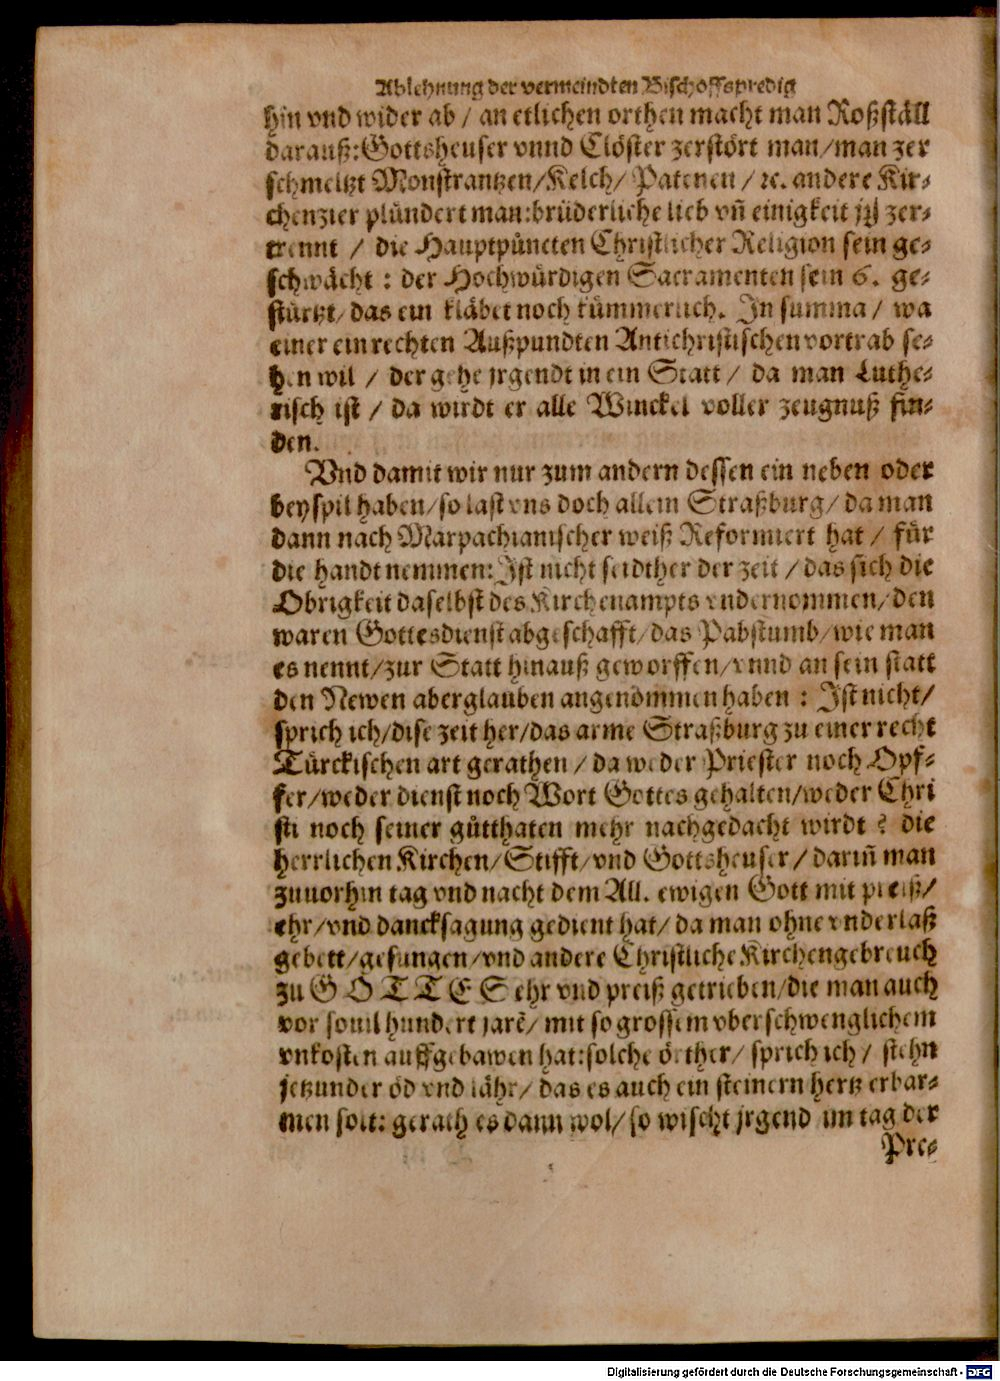 Ablehnung der vermeindten Bischoffspredig
hin vnd wider ab / an etlichen orthen macht man Roßställ
darauß: Gottsheuser vnnd Clöster zerstört man / man zer
schmeltzt Monstrantzen / Kelch / Patenen / ꝛc. andere Kir-
chenzier plündert man: brüderliche lieb vn̄ einigkeit ist zer-
trennt / die Hauptpüncten Christlicher Religion sein ge-
schwächt : der Hochwürdigen Sacramenten sein 6. ge-
stürtzt / das ein kläbet noch kümmerlich. In summa / wa
einer ein rechten Außpundten Antichristischen vortrab se-
hen wil / der gehe jrgendt in ein Statt / da man Luthe-
risch ist / da wirdt er alle Winckel voller zeugnuß fin-
den.
Vnd damit wir nur zum andern dessen ein neben oder
beyspil haben / so last vns doch allein Straßburg / da man
dann nach Marpachianischer weiß Reformiert hat / für
die handt nemmen: Ist nicht seidther der zeit / das sich die
Obrigkeit daselbst des Kirchenampts vndernommen / den
waren Gottesdienst abgeschafft / das Pabstumb / wie man
es nennt / zur Statt hinauß geworffen / vnnd an sein statt
den Newen aberglauben angenommen haben : Ist nicht /
sprich ich / dise zeit her / das arme Straßburg zu einer recht
Türckischen art gerathen / da weder Priester noch Opf-
fer / weder dienst noch Wort Gottes gehalten / weder Chri
sti noch seiner gütthaten mehr nachgedacht wirdt ? die
herrlichen Kirchen / Stifft / vnd Gottsheuser / darin̄ man
zuuorhin tag vnd nacht dem All. ewigen Gott mit preiß /
ehr / vnd dancksagung gedient hat / da man ohne vnderlaß
gebett / gesungen / vnd andere Christliche Kirchengebreuch
zu GOTTES ehr vnd preiß getrieben / die man auch
vor souil hundert jarē / mit so grossem vberschwenglichem
vnkosten auffgebawen hat: solche örther / sprich ich / stehn
jetzunder öd vnd lähr / das es auch ein steinern hertz erbar-
men solt: gerath es dann wol / so wischt jrgend im tag der
Pre-
Digitalisierung gefördert durch die Deutsche Forschungsgemeinschaft - DFG